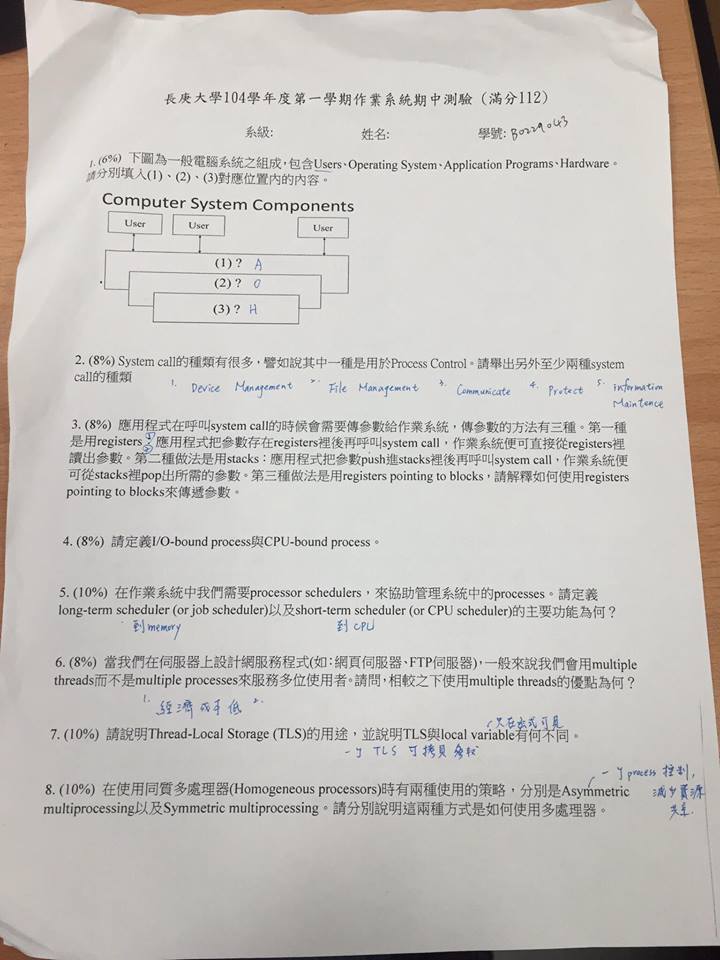 長庚大學104學年度第一學期作業系統期中測驗（滿分112）
系級: 姓名: 學號: B0229043
1. (6%) 下圖為一般電腦系統之組成，包含Users、Operating System、Application Programs、Hardware。
請分別填入(1)、(2)、(3)對應位置內的內容。
Computer System Components
User User User
(1) ? A
(2) ? O
(3) ? H
2. (8%) System call的種類有很多，譬如說其中一種是用於Process Control。請舉出另外至少兩種system
call的種類
1. Device Management 2. File Management 3. Communicate 4. Protect 5. information
Maintence
3. (8%) 應用程式在呼叫system call的時候會需要傳參數給作業系統，傳參數的方法有三種。第一種
是用registers：應用程式把參數存在registers裡後再呼叫system call，作業系統便可直接從registers裡
讀出參數。第二種做法是用stacks：應用程式把參數push進stacks裡後再呼叫system call，作業系統便
可從stacks裡pop出所需的參數。第三種做法是用registers pointing to blocks，請解釋如何使用registers
pointing to blocks來傳遞參數。
4. (8%) 請定義I/O-bound process與CPU-bound process。
5. (10%) 在作業系統中我們需要processor schedulers，來協助管理系統中的processes。請定義
long-term scheduler (or job scheduler)以及short-term scheduler (or CPU scheduler)的主要功能為何？
到memory 到CPU
6. (8%) 當我們在伺服器上設計網服務程式(如:網頁伺服器、FTP伺服器)，一般來說我們會用multiple
threads而不是multiple processes來服務多位使用者。請問，相較之下使用multiple threads的優點為何？
1. 經濟成本低 2.
只在函式可見
7. (10%) 請說明Thread-Local Storage (TLS)的用途，並說明TLS與local variable有何不同。
TLS 可拷貝
一個process 控制,
8. (10%) 在使用同質多處理器(Homogeneous processors)時有兩種使用的策略，分別是Asymmetric
減少資源
multiprocessing以及Symmetric multiprocessing。請分別說明這兩種方式是如何使用多處理器。
共享.